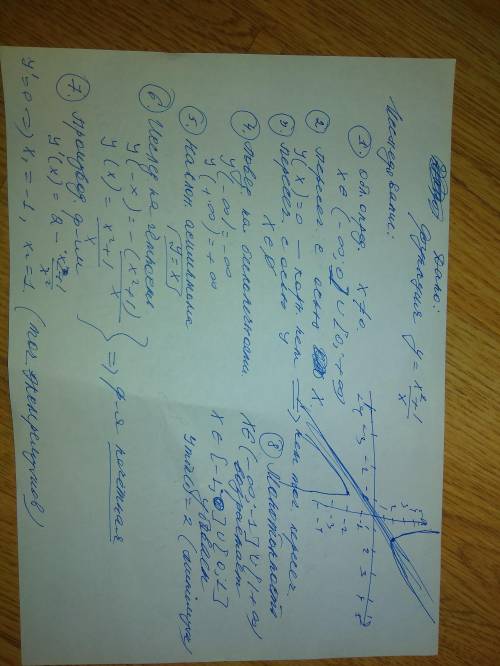 Дано:
функция y = x²+1/x
Исследование:
① обл. опред. x≠0
x∈(-∞,0]∪[0,+∞)
② Пересеч. с осью X.
y(x)=0 — корн. нет ⇒ нет точ. пересеч.
Пересеч. с осью y
x∈∅
④ Повед. на бесконечности.
y(-∞) = -∞
y(+∞) = +∞
⑤ Наклон. асимптота
y=x
⑥ Исслед. на чётность
y(-x) = -(x²+1)/x
y(x) = x²+1/x
⇒ ф-я нечетная
⑦ Производ. ф-ии
y'(x) = 2 - x²+1/x²
y'=0 ⇒ x₁ = -1, x₂ = 1 (точ. экстремумов)
⑧ Монотонность
x∈(-∞,-1]∪[1,+∞)
возрастает
x∈[-1,0]∪[0,1]
убывает
-4 -3 -2 -1 1 2 3 4